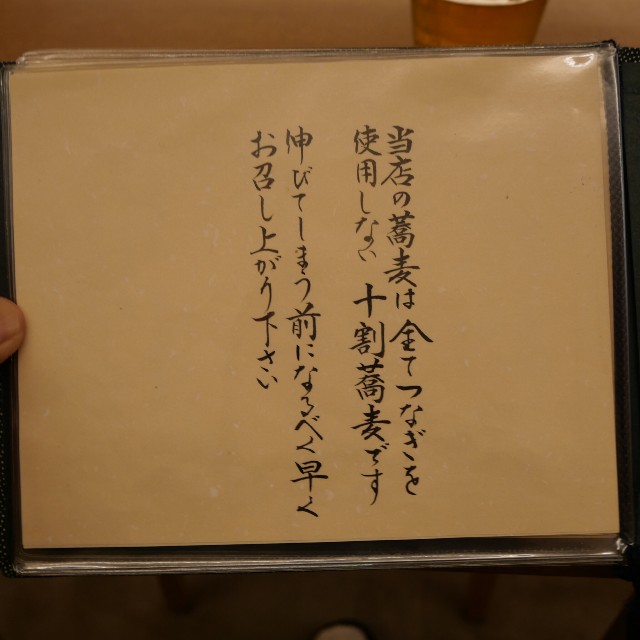 当店の蕎麦は全てつなぎを
使用しない十割蕎麦です
伸びてしまう前になるべく早く
お召し上がり下さい